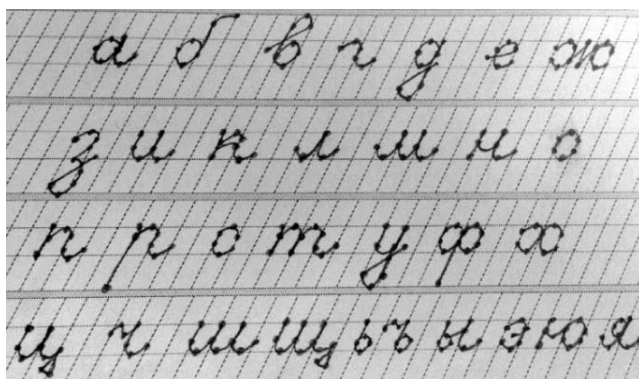 а б в г д е ж
з и к л м н о
п р с т у ф х
ц ч ш щ ь ъ ы э ю я